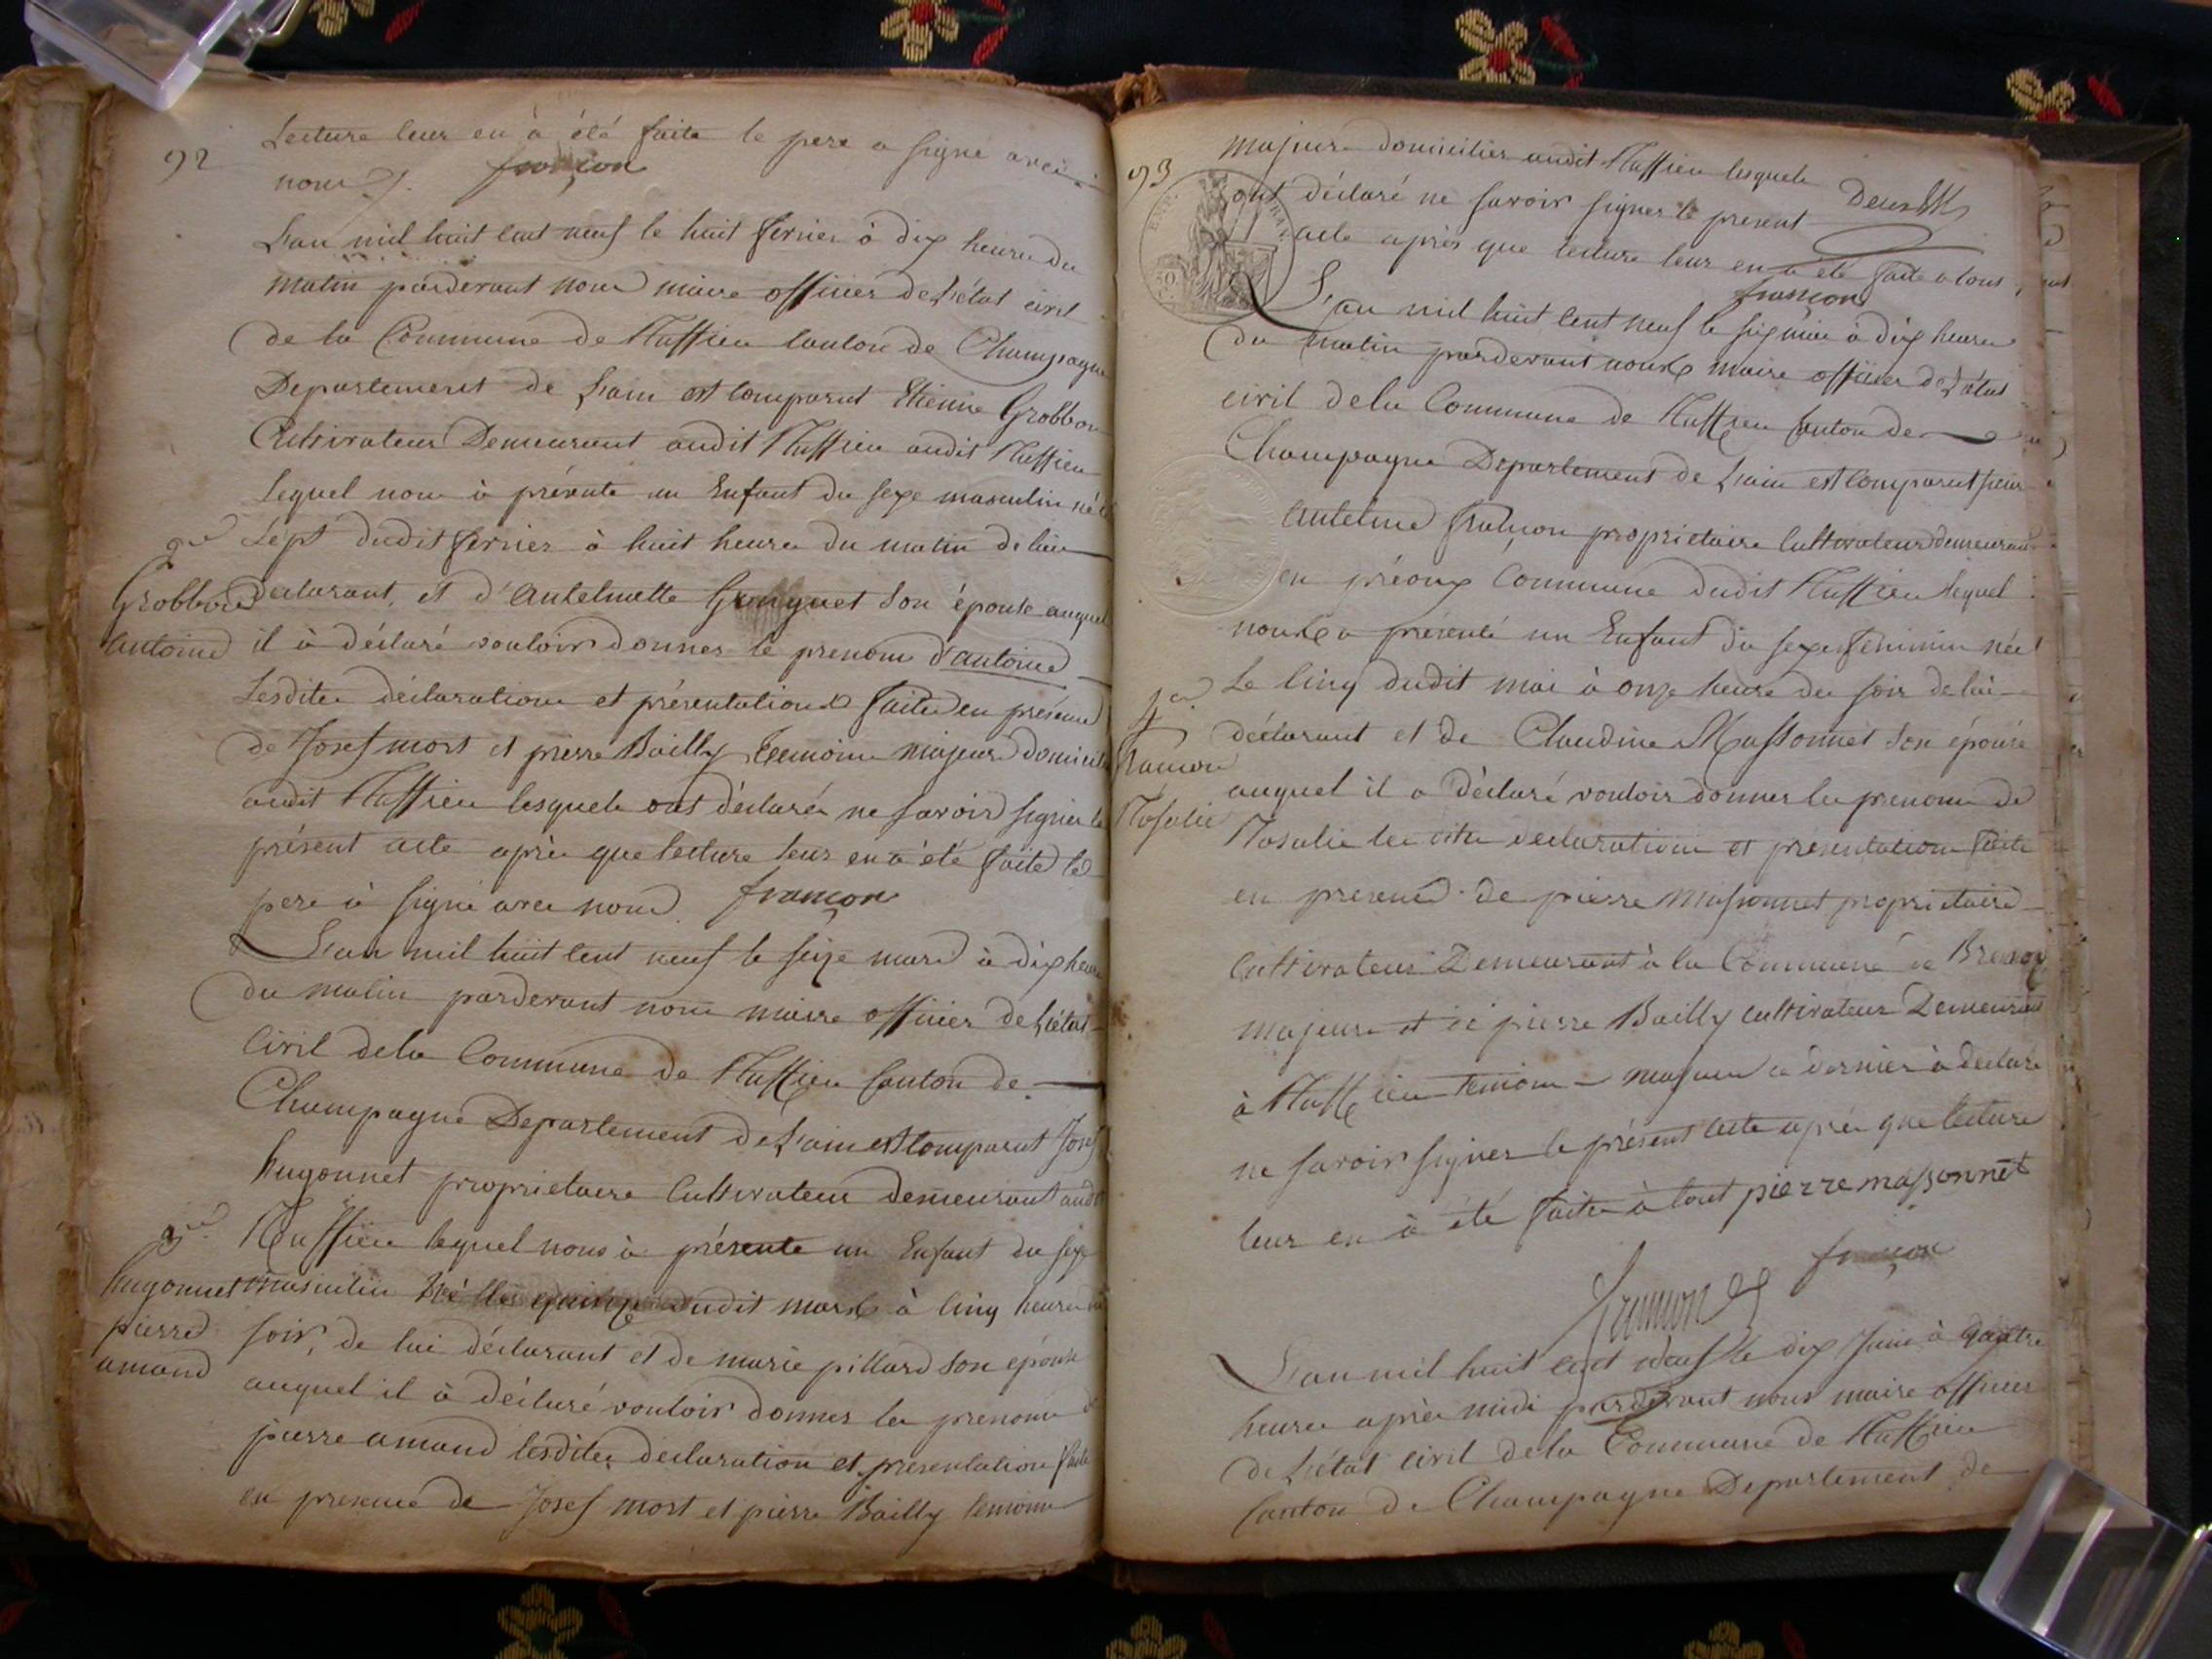 92
Lecture leur en à été faite le pere a signé avec
nous françon
L'an mil huit cent neuf le huit fevrier à dix heure du
matin pardevant nous maire officier de L'état civil
de la Commune de Ruffieu Canton de Champagne
Departement de L'ain est comparut Etienne Grobbon
Cultivateur Demeurant audit Ruffieu audit Ruffieu
Lequel nous à présenté un Enfant du sexe masculin né le
Sept dudit fevrier à huit heure du matin de lui
declarant, et d'Antelmette son épouse auquel
Grobbon
antoine
il à déclaré vouloir donner le prenom d'antoine
Lesdites déclaration et présentation faite en présence
de Josef mort et pierre Bailly temoins majeurs domicilié
audit Ruffieu lesquels ont déclaré ne savoir signer le
présent acte après que lecture leur en a été faite le
pere à signé avec nous françon
L'an mil huit cent neuf le seize mars à dix heure
du matin pardevant nous maire officier de L'état
Civil de la Commune de Ruffieu Canton de
Champagne Departement de L'ain est comparut Josef
hugonnet proprietaire Cultivateur demeurant audit
Ruffieu lequel nous à présenté un Enfant du sexe
hugonnet
pierre
amand
masculin Né le quinze dudit mars à cinq heure du
soir, de lui déclarant et de marie pillard son épouse
auquel il à déclaré vouloir donner les prenoms de
pierre amand lesdites declaration et presentation faite
en presence de Josef mort et pierre Bailly temoins
93
majeurs domiciliés audit Ruffieu lesquels
ont déclaré ne savoir signer le present
acte après que lecture leur en a été faite a tous
françon
L'an mil huit cent neuf le six mai à dix heure
du matin pardevant nous maire officier de L'état
civil de la Commune de Ruffieu Canton de
Champagne Departement de L'ain est comparut sieur
Antelme françon proprietaire Cultivateur demeurant
en préoux Commune dudit Ruffieu lequel
nous a présenté un Enfant du sexe feminin née
Le Cinq dudit mai à onze heure du soir de lui
déclarant et de Claudine Massonnet son épouse
francon
Rosalie
auquel il a déclaré vouloir donner le prenom de
Rosalie les dites declaration et présentation faite
en presence de pierre Massonnet proprietaire
Cultivateur Demeurant à la Commune de
majeure et de pierre Bailly cultivateur Demeurant
à Ruffieu temoins majeurs ce dernier à declaré
ne savoir signer le présent acte après que lecture
leur en à été faite à tout pierre massonnet
françon
francon
L'an mil huit cent neuf le dix Juin à quatre
heures après midi pardevant nous maire officier
de L'état civil de la Commune de Ruffieu
Canton de Champagne Departement de